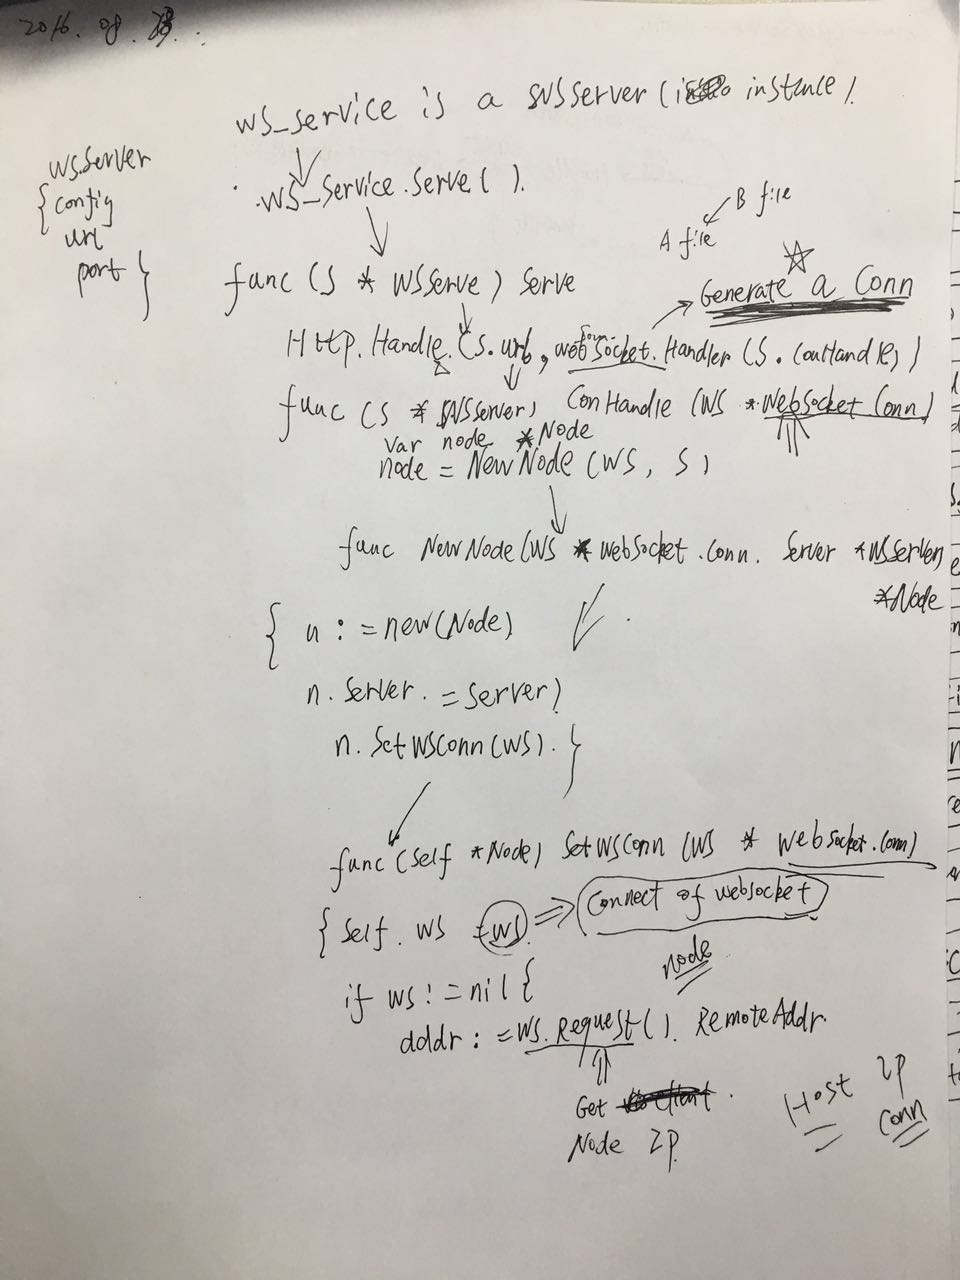 2016.08.
ws_service is a svsserver ( instance ).
ws.server
{ config
url
port }
.ws_service.serve( ).
B file
A file
func (S * wsserve) serve
Generate a Conn
Http.Handle.(s.url, websocket.Handler(S.conHandle))
func (S * wsserver) ConHandle (ws *websocket Conn)
var node *Node
node = NewNode (ws, S)
func NewNode(ws *websocket.conn. server *wsserver)
*Node
{ n := new(Node)
n.server. = server)
n.SetWSConn(ws). }
func (self *Node) SetWSConn (ws * websocket.conn)
{ self.ws = ws. ⇒ Connect of websocket
node
if ws != nil {
dddr := ws.Request().RemoteAddr.
Get .
Node IP.
Host IP
conn